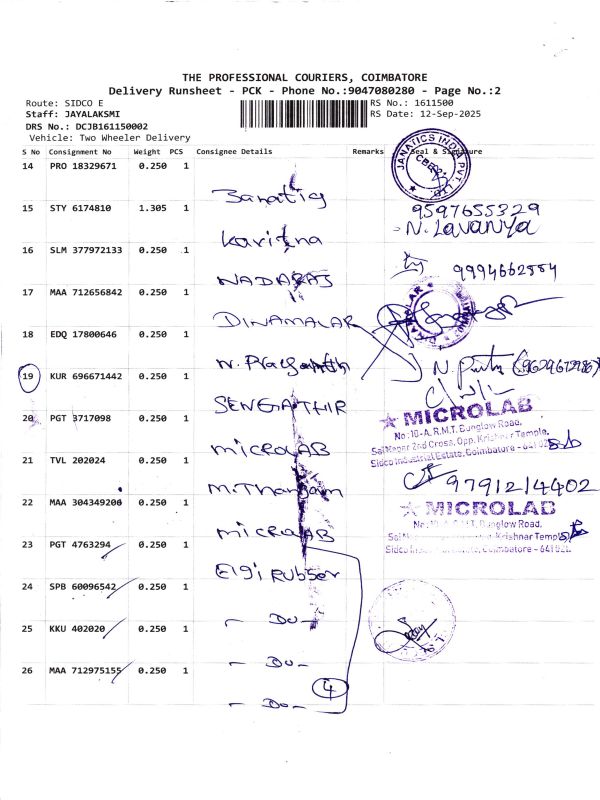 THE PROFESSIONAL COURIERS, COIMBATORE
Delivery Runsheet - PCK - Phone No.:9047080280 - Page No.:2
Route: SIDCO E
RS No.: 1611500
Staff: JAYALAKSMI
RS Date: 12-Sep-2025
DRS No.: DCJB161150002
Vehicle: Two Wheeler Delivery
S No Consignment No Weight PCS Consignee Details Remarks Seal & Signature
JANATICS INDIA PVT. LTD.
14 PRO 18329671 0.250 1
Janatig
15 STY 6174810 1.305 1
9597655329
Kavitha
N. Lavanya
16 SLM 377972133 0.250 1
NADARAJ
9994662554
17 MAA 712656842 0.250 1
DINAMALAR
18 EDQ 17800646 0.250 1
N. Prasanth
19 KUR 696671442 0.250 1
SENGATHIR
20 PGT 3717098 0.250 1
MICROLAB
No:10-A, R.M.T. Bunglow Road,
Sai Nagar 2nd Cross, Opp. Krishnar Temple,
Sidco Industrial Estate, Coimbatore - 641 021
microLAB
21 TVL 202024 0.250 1
9791214402
M. Thangam
22 MAA 304349206 0.250 1
MICROLAB
Bunglow Road,
Krishnar Temple
Coimbatore - 641 021.
microLAB
23 PGT 4763294 0.250 1
Elgi Rubber
24 SPB 60096542 0.250 1
- Do -
25 KKU 402020 0.250 1
- Do -
26 MAA 712975155 0.250 1
4
- Do -